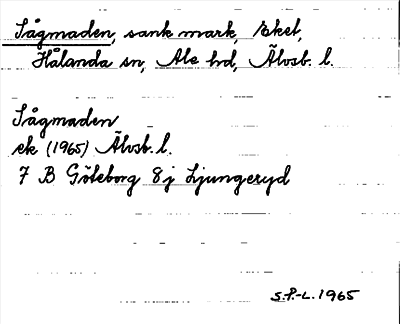 Sågmaden, sank mark, Eket,
Hålanda sn, Ale hd, Älvsb. l.
Sågmaden
ek (1965) Älvsb. l.
7 B Göteborg 8j Ljungeryd
S.P.-L. 1965